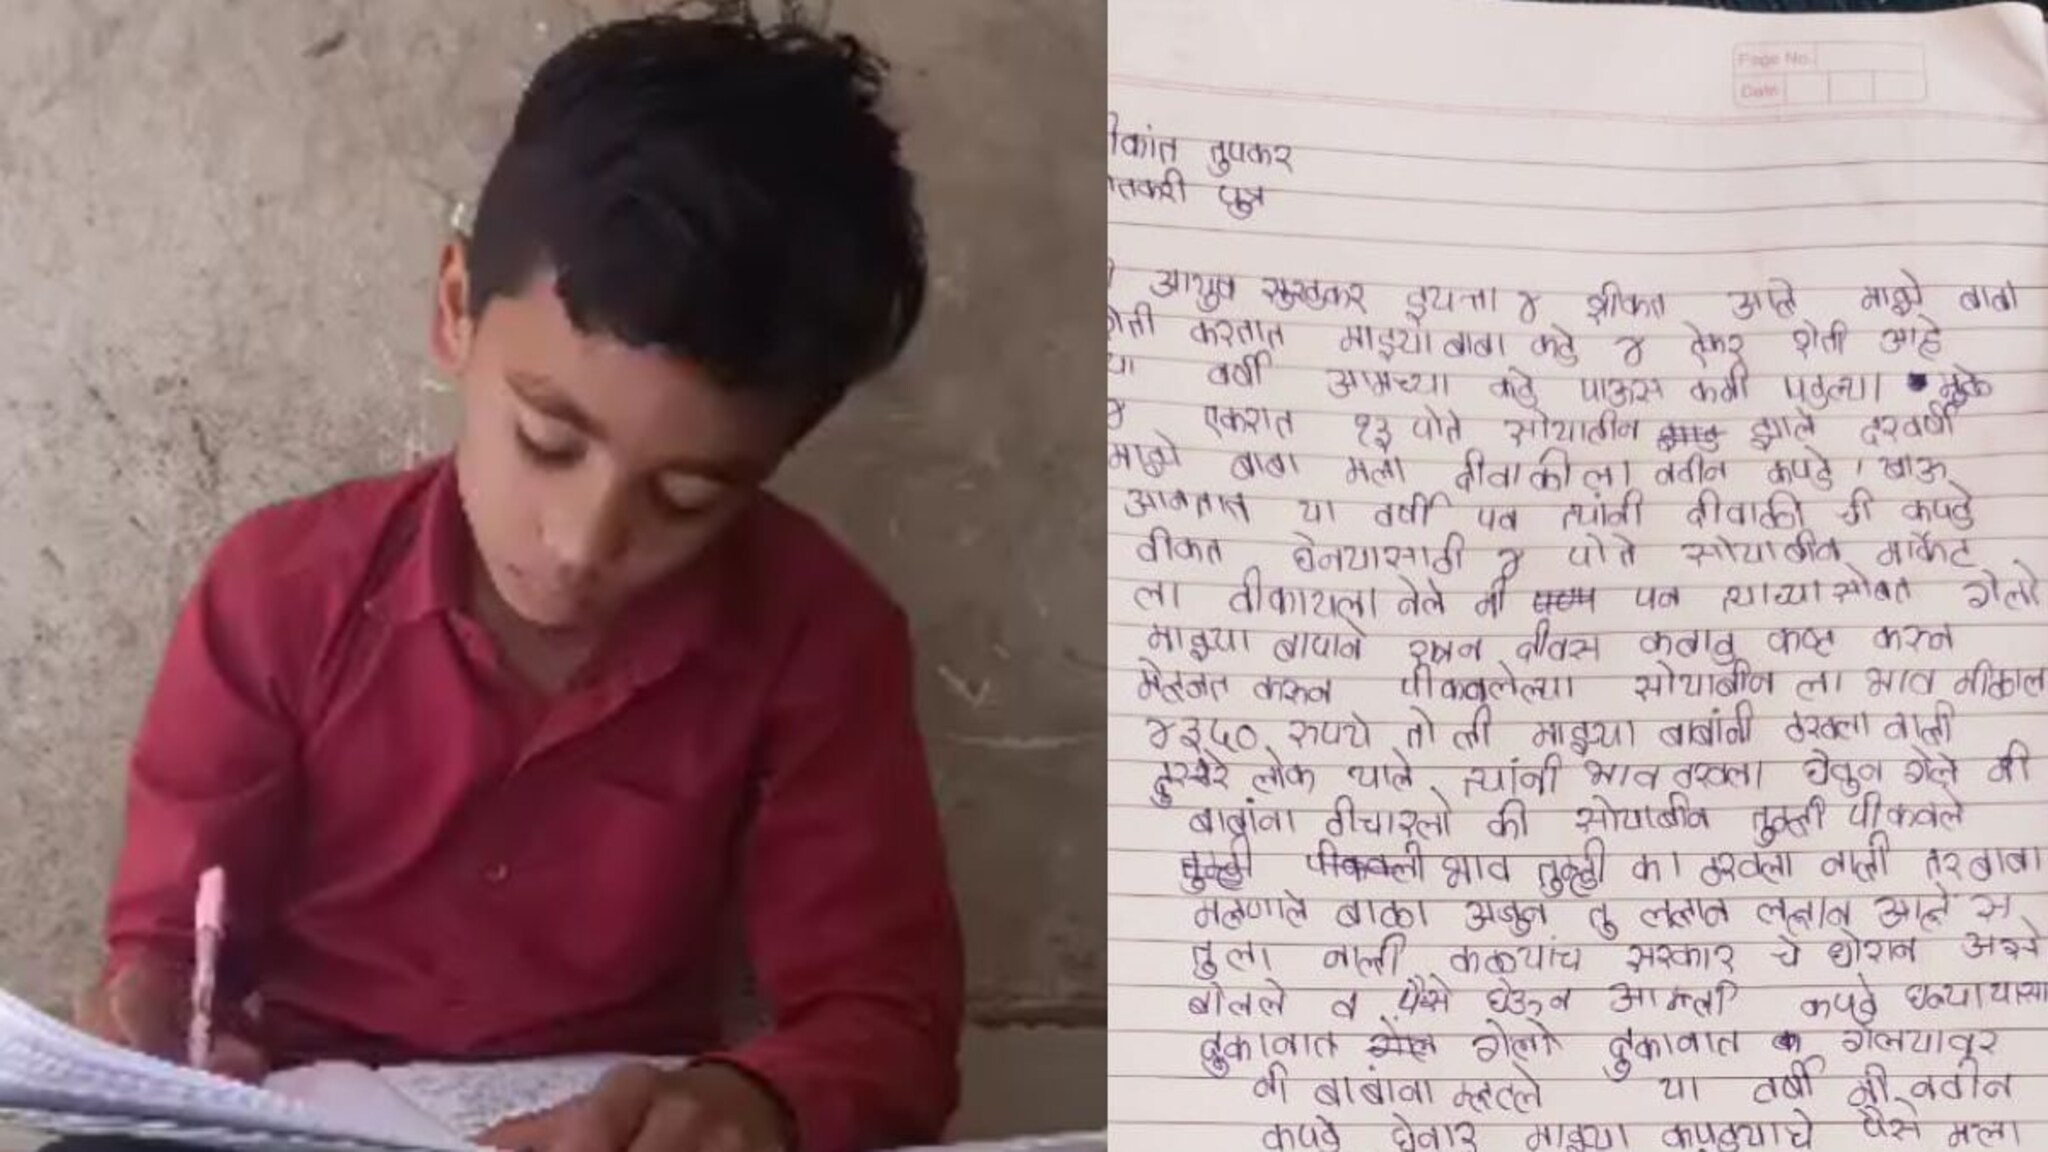 Page No.
Date
िकांत तुपकर
तकरी पुत्र
आयुष सुरुळकर इयत्ता ४ शीकत आहे माझे बाबा
शेती करतात माझ्या बाबा कडे ४ ऐकर शेती आहे
या वर्षी आमच्या कडे पाऊस कमी पडल्या मुळे
४ एकरात १३ पोते सोयाबीन झाले दरवर्षी
माझे बाबा मला दीवाळीला नवीन कपडे । खाऊ
आनतात या वर्षी पन त्यांनी दीवाळी ची कपडे
वीकत घेनयासाठी ४ पोते सोयाबीन मार्केट
ला वीकायला नेले मी पन त्याच्यासोबत गेलो
माझ्या बापाने रात्रन दीवस कबाड कष्ट करून
मेहनत करून पीकवलेल्या सोयाबीन ला भाव मीळाल
४३५० रुपये तो ही माझ्या बाबांनी ठरवला नाही
दुसरे लोक याले त्यांनी भाव ठरवला घेवुन गेले मी
बाबांना वीचारलो की सोयाबीन तुम्ही पीकवले
तुम्ही पीकवली भाव तुम्ही का ठरवला नाही तर बाबा
म्हणाले बाळा अजुन तु लहान लहान आहे स
तुला नाही कळयाच सरकार चे धोरान असे
बोलले व पैसे घेऊन आम्ही कपडे घेन्यायासा
दुकानात गेलो दुकानात गेलयावर
मी बाबांना म्हटले या वर्षी मी नवीन
कपडे घेनार माझ्या कपड्याचे पैसे मला